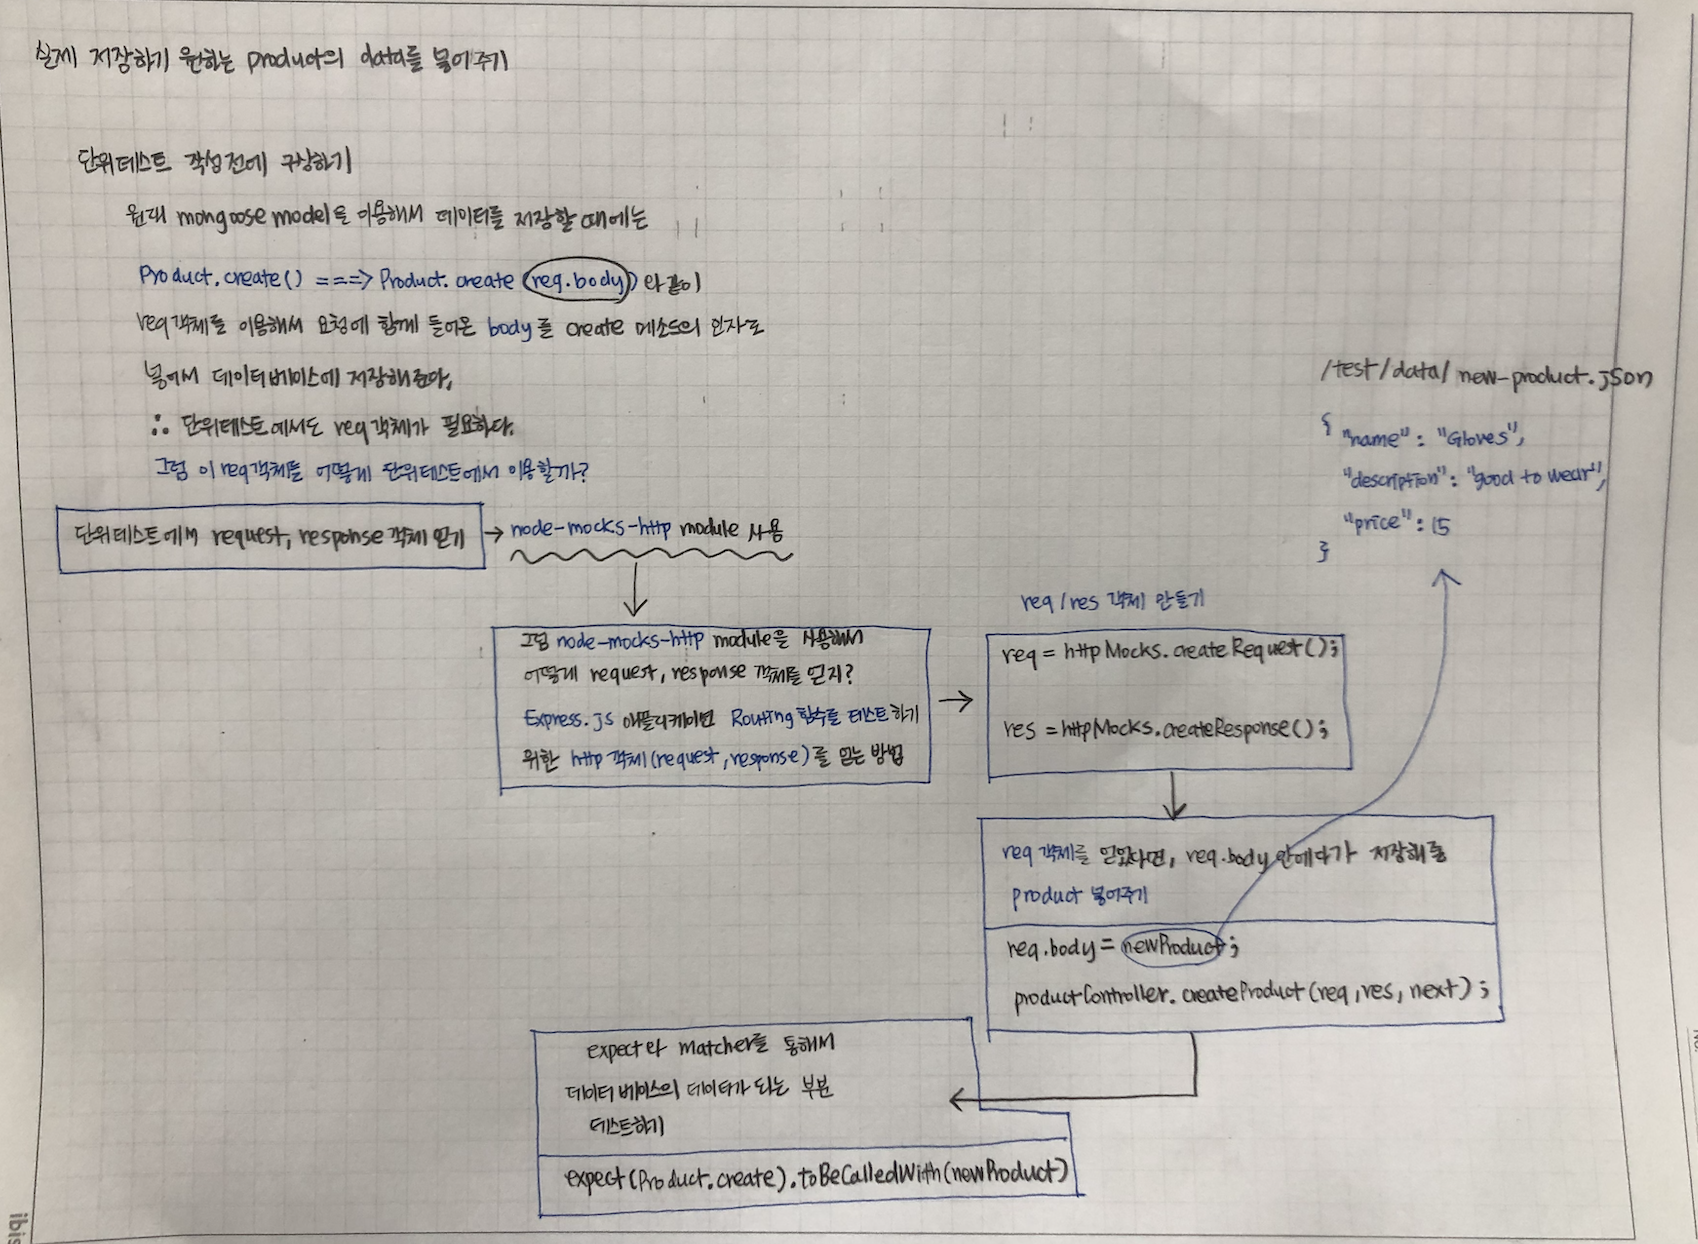 실제 저장하기 원하는 product의 data를 넣어주기
단위테스트 작성전에 구상하기
원래 mongoose model을 이용해서 데이터를 저장할 때에는
Product.create() ===> Product.create (req.body) 와 같이
req 객체를 이용해서 요청에 함께 들어온 body를 create 메소드의 인자로
넣어서 데이터베이스에 저장해준다,
∴ 단위테스트에서도 req 객체가 필요하다.
그럼 이 req객체를 어떻게 단위테스트에서 이용할까?
단위테스트에서 request, response 객체 얻기 → node-mocks-http module 사용
그럼 node-mocks-http module을 사용해서
어떻게 request, response 객체를 얻지?
Express.js 애플리케이션 Routing 함수를 테스트하기
위한 http 객체(request, response)를 얻는 방법
req/res 객체 만들기
req = httpMocks.createRequest();
res = httpMocks.createResponse();
/test/data/new-product.json
{ "name": "Gloves",
"description": "good to wear",
"price": 15
}
req 객체를 얻었다면, req.body 안에다가 저장해줄
product 넣어주기
req.body = newProduct;
productController.createProduct(req, res, next);
expect와 matcher를 통해서
데이터베이스의 데이터가 되는 부분
테스트하기
expect(Product.create).toBeCalledWith(newProduct)
ibis